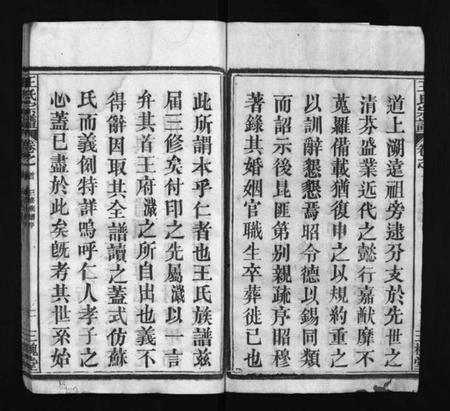 道上溯遠祖旁逮分支於先世之
清芬盛業近代之懿行嘉猷靡不
蒐羅備載猶復申之以規約重之
以訓辭懇懇焉昭令德以錫同類
而詔示後昆匪第別親疏序昭穆
著錄其婚姻官職生卒葬徙已也
此所謂本乎仁者也王氏族譜茲
屆三修矣付印之先屬瀻以一言
弁其首王府瀻之所自出也義不
得辭因取其全譜讀之蓋式仿蘇
氏而義例特詳嗚呼仁人孝子之
心蓋已盡於此矣既考其世系始
王氏宗譜
卷之
三槐堂